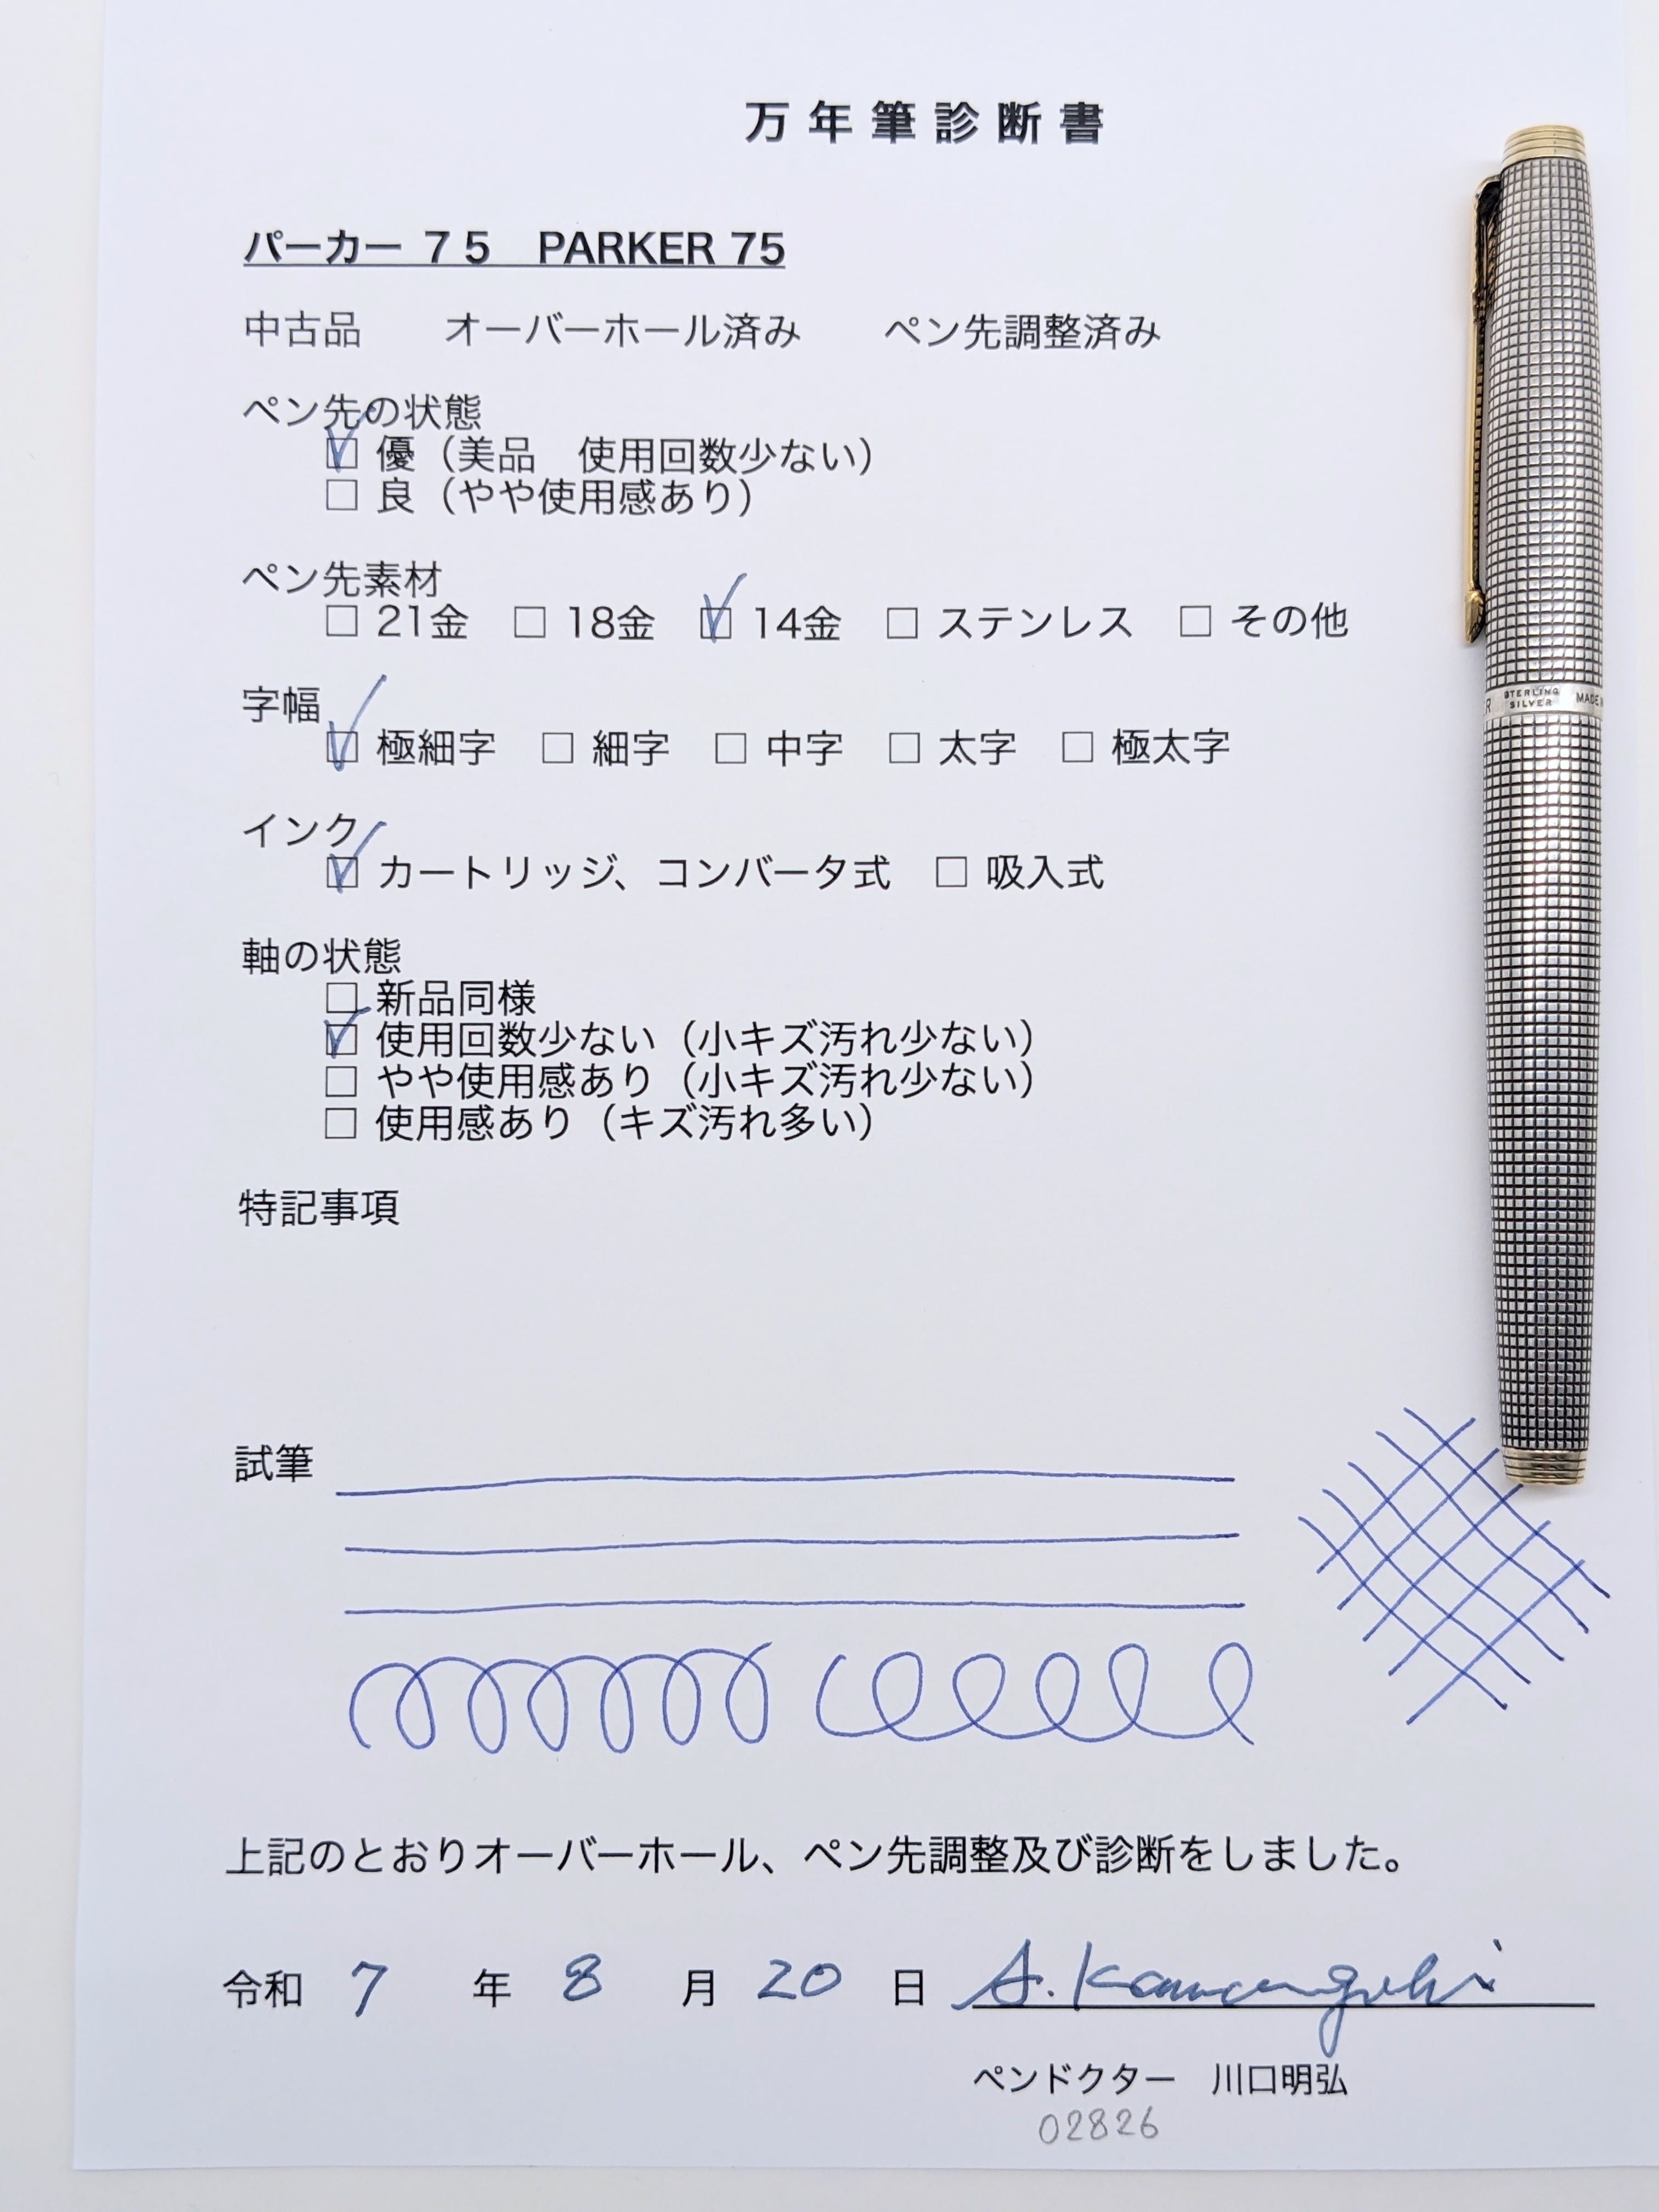 万年筆診断書
パーカー ７５　PARKER 75
中古品　　オーバーホール済み　　ペン先調整済み
ペン先の状態
☑ 優（美品　使用回数少ない）
□ 良（やや使用感あり）
ペン先素材
□ 21金　□ 18金　☑ 14金　□ ステンレス　□ その他
字幅
☑ 極細字　□ 細字　□ 中字　□ 太字　□ 極太字
インク
☑ カートリッジ、コンバータ式　□ 吸入式
軸の状態
□ 新品同様
☑ 使用回数少ない（小キズ汚れ少ない）
□ やや使用感あり（小キズ汚れ少ない）
□ 使用感あり（キズ汚れ多い）
特記事項
試筆
上記のとおりオーバーホール、ペン先調整及び診断をしました。
令和 7 年 8 月 20 日 A. Kawaguchi
ペンドクター　川口明弘
02826
STERLING
SILVER
MADE